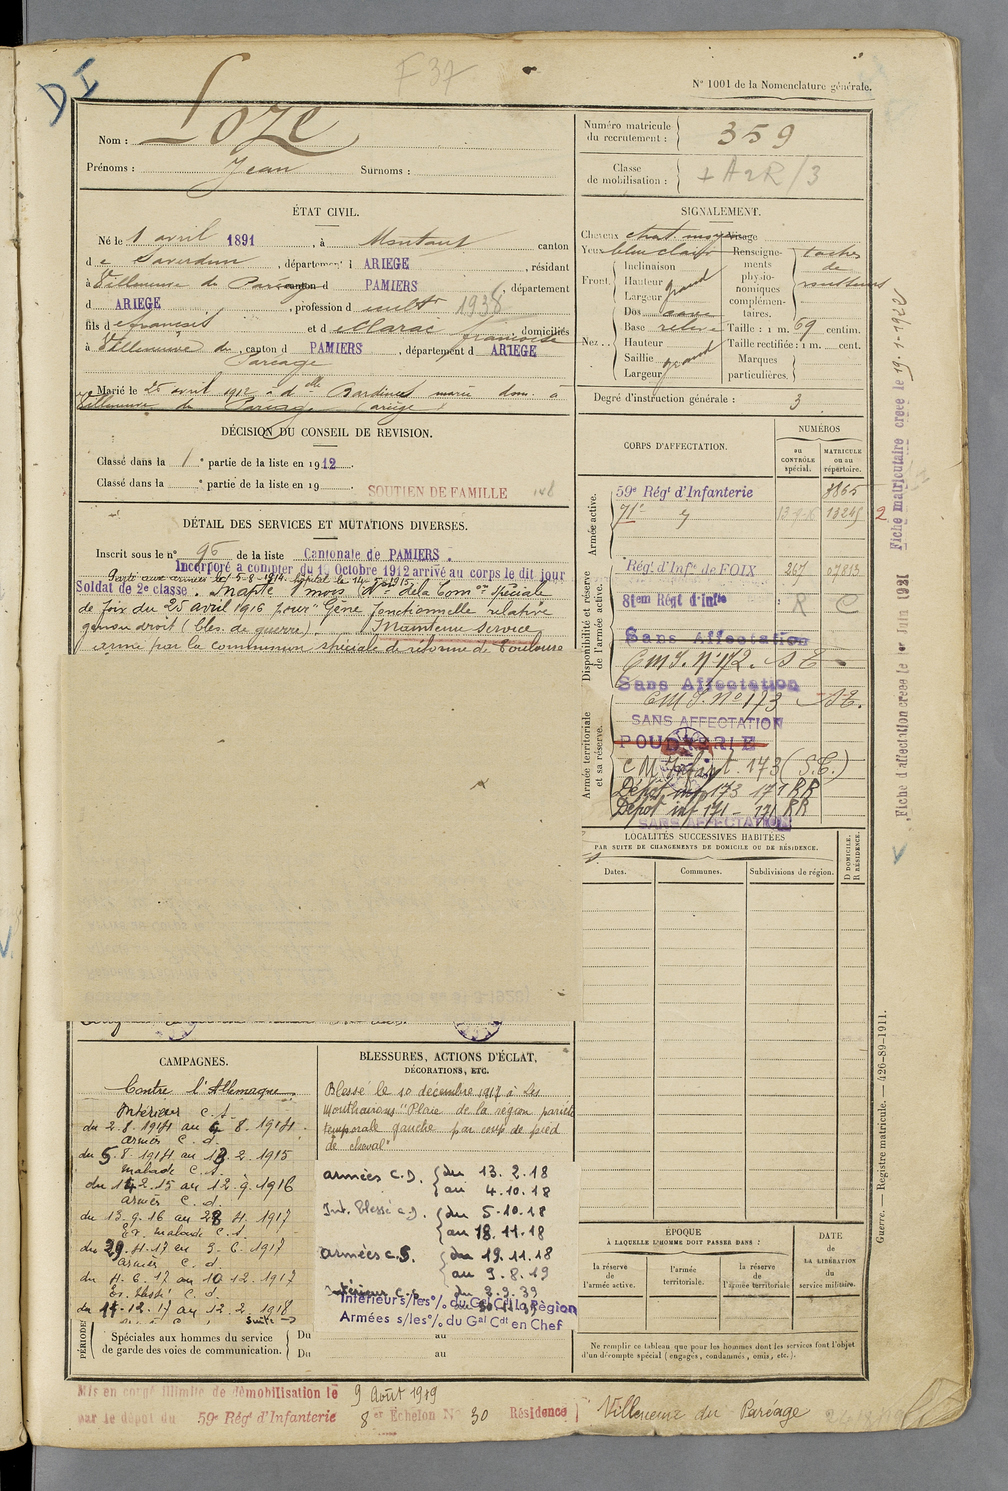 DI
F 37
N° 1001 de la Nomenclature générale.
Nom : Loze
Prénoms : Jean Surnoms :
Numéro matricule du recrutement : 359
Classe de mobilisation :
ÉTAT CIVIL.
Né le 1 avril 1891, à Montaut canton
de Saverdun, département d ARIEGE, résidant
à Villeneuve du Paréage canton d PAMIERS, département
d ARIEGE, profession de cultr 1938
fils de françois et de Marac françoise domiciliés
à Villeneuve du Paréage, canton d PAMIERS, département d ARIEGE
Marié le 25 avril 1912 à dlle Bardines marie dom. à
Villeneuve du Paréage (ariège)
SIGNALEMENT.
Cheveux chat. moy Visage
Yeux bleu clair
Front. Inclinaison
Hauteur grand
Largeur
Nez. Dos cave
Base relevé
Hauteur
Saillie grand
Largeur
Renseignements physionomiques complémentaires. taches de rousseurs
Taille : 1 m. 69 centim.
Taille rectifiée : 1 m. cent.
Marques particulières.
Degré d'instruction générale : 3
DÉCISION DU CONSEIL DE REVISION.
Classé dans la 1e partie de la liste en 1912.
Classé dans la e partie de la liste en 19 .
SOUTIEN DE FAMILLE
DÉTAIL DES SERVICES ET MUTATIONS DIVERSES.
Inscrit sous le n° 96 de la liste Cantonale de PAMIERS.
Incorporé a compter du 10 Octobre 1912 arrivé au corps le dit jour
Parti aux armées le 5-8-1914. hôpital le
Soldat de 2e classe. Inapte 1 mois don de la Comon Spéciale
de foix du 25 avril 1916 pour "Gène fonctionnelle relative
genou droit (bles. de guerre). Maintenu service
armé par la commission spéciale de réforme de Toulouse
CORPS D'AFFECTATION.
NUMÉROS
au CONTRÔLE spécial.
MATRICULE ou au répertoire.
Armée active.
59e Régt d'Infanterie 8865
71e 13249
Disponibilité et réserve de l'armée active.
Régt d'Infie de FOIX 267 07813
81em Régt d'Infie R C
Sans Affectation
Sans Affectation
CM I. N° 173
Armée territoriale et sa réserve.
SANS AFFECTATION
POUDRERIE
173 (S.E.)
Dépôt inf 173 171 RR
Dépôt inf 171 - 171 RR
SANS AFFECTATION
Fiche matriculaire creee le 19-1-1922
Fiche d'affectation creee le 1er Juin 1931
LOCALITÉS SUCCESSIVES HABITÉES
PAR SUITE DE CHANGEMENTS DE DOMICILE OU DE RÉSIDENCE.
Dates. Communes. Subdivisions de région. D DOMICILE. R RÉSIDENCE.
CAMPAGNES.
Contre l'Allemagne
Intérieur C. S.
du 2.8.1914 au 4.8.1914.
armés C. d.
du 5.8.1914 au 13.2.1915
malade C. S.
du 14.2.15 au 12.9.1916
armés C. d.
du 13.9.16 au 28.4.1917
Ev. malade C. S.
du 29.4.17 au 3.6.1917
armés C. d.
du 4.6.17 au 10.12.1917
Ev. blessé C. d.
du 11.12.17 au 12.2.1918
suite →
BLESSURES, ACTIONS D'ÉCLAT, DÉCORATIONS, ETC.
Blessé le 10 décembre 1917 à Les
Monthairons "Plaie de la region pariéto
temporale gauche par coup de pied
de cheval"
armées C.D. du 13.2.18
au 4.10.18
Int. blessé C.D. du 5.10.18
au 18.11.18
armées C.S. du 19.11.18
au 9.8.19
Intérieur C.S. du 3.9.39
Intérieur s/les o/. du Gal Cdt la Région
Armées s/les o/. du Gal Cdt en Chef
PÉRIODES
Spéciales aux hommes du service
de garde des voies de communication.
Du au
Du au
ÉPOQUE
À LAQUELLE L'HOMME DOIT PASSER DANS :
la réserve de l'armée active.
l'armée territoriale.
la réserve de l'armée territoriale
DATE de LA LIBÉRATION du service militaire.
Ne remplir ce tableau que pour les hommes dont les services font l'objet
d'un décompte spécial (engagés, condamnés, omis, etc.).
Guerre. — Registre matricule. — 426-89-1911.
Mis en congé illimité de démobilisation le 9 Août 1919
par le dépot du 59e Régt d'Infanterie 8er Échelon N° 30 Résidence Villeneuve du Paréage